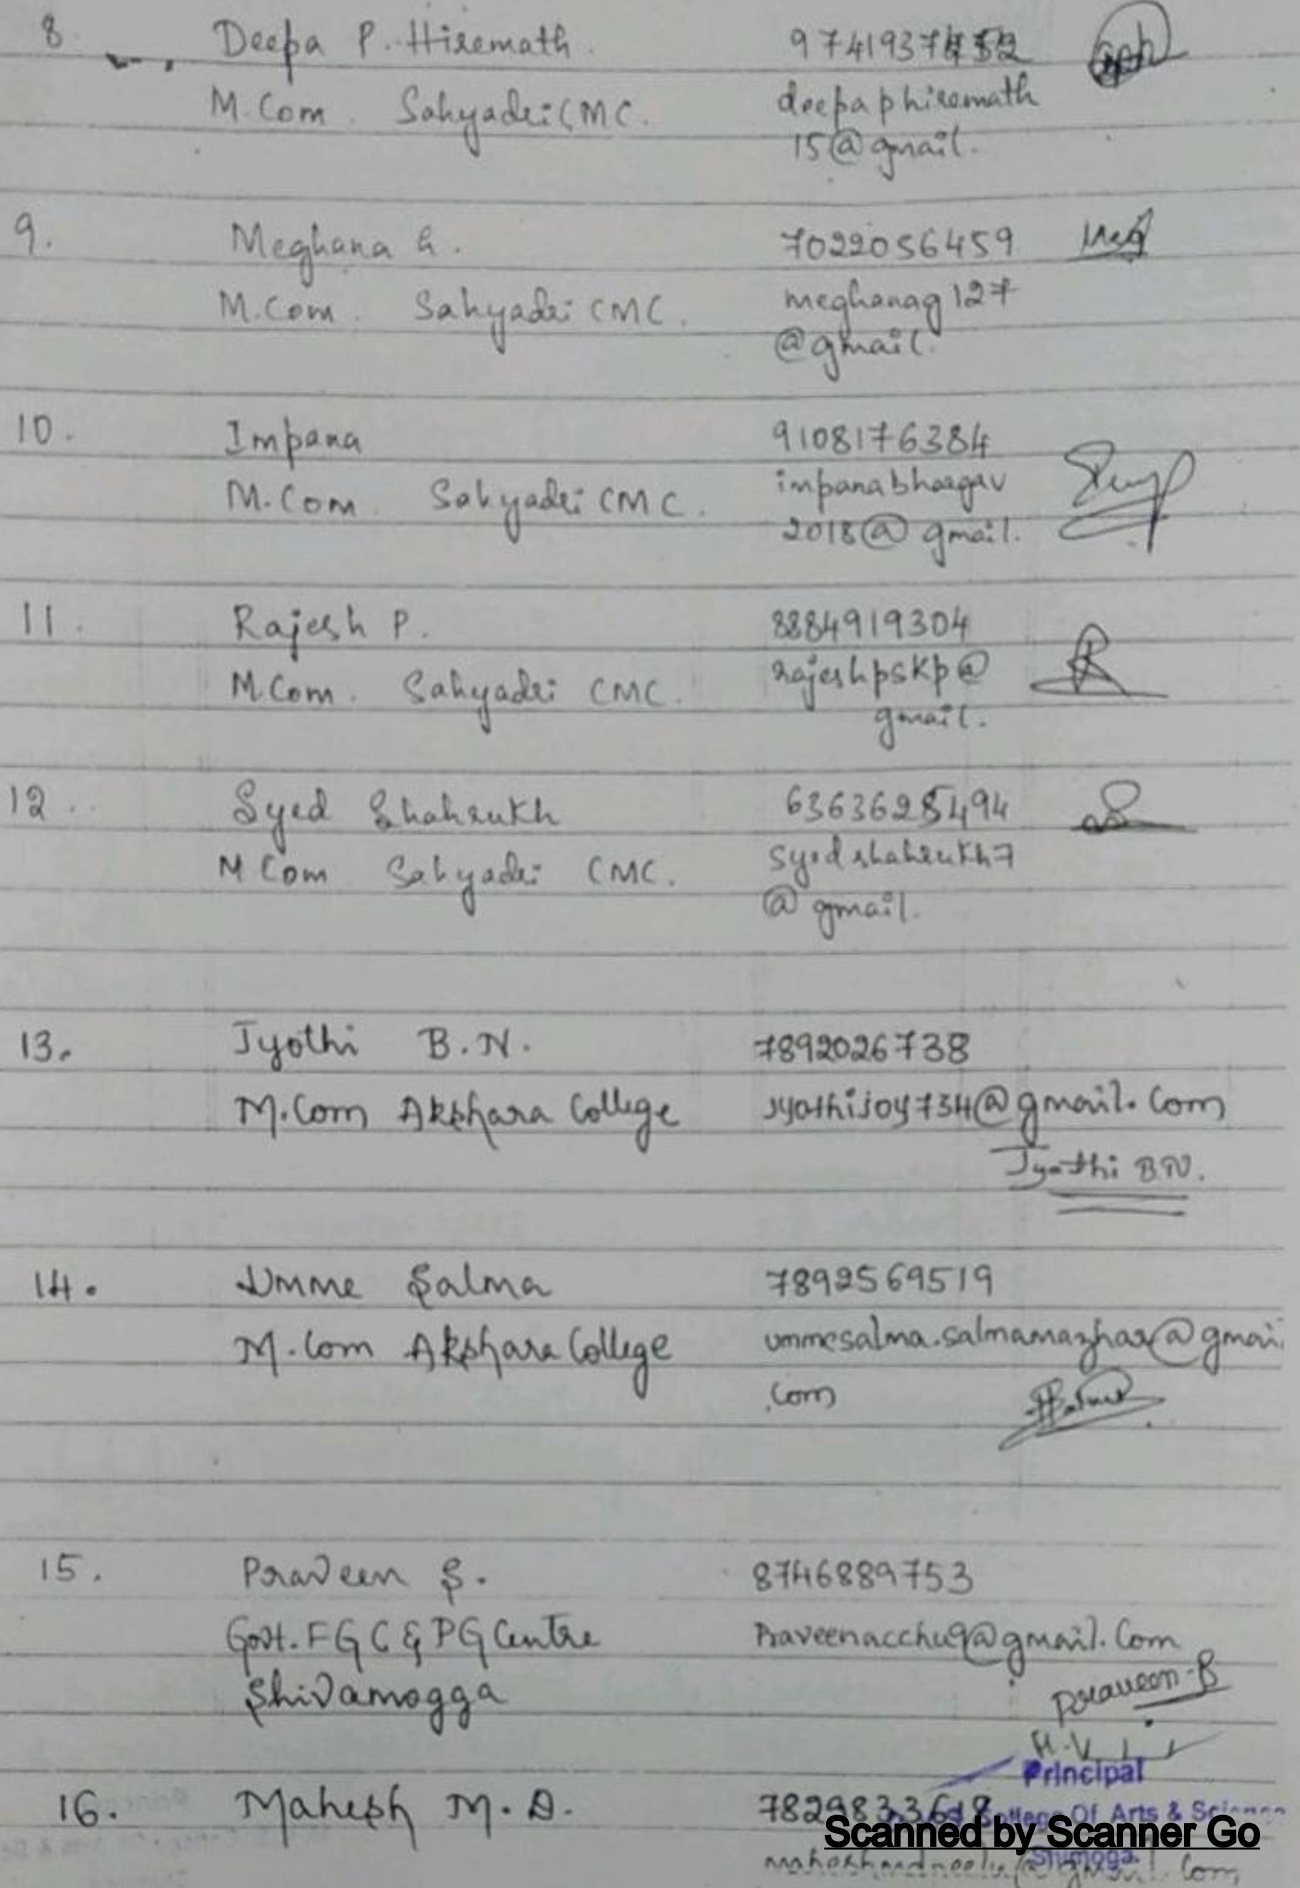 8. Deepa P. Hiremath. 9741937452
M.Com. Sahyadri CMC. deepaphiremath
15@gmail.
9. Meghana G. 7022056459 Meg
M.Com. Sahyadri CMC. meghanag127
@gmail.
10. Impana 9108176384
M.Com Sahyadri CMC. impanabhargav
2018@gmail.
11. Rajesh P. 8884919304
M.Com. Sahyadri CMC. rajeshpskp@
gmail.
12. Syed Shahrukh 6363628494
M Com Sahyadri CMC. Syedshahrukh7
@gmail.
13. Jyothi B.N. 7892026738
M.Com Akshara College Jyothijoy734@gmail.com
Jyothi BN.
14. Umme Salma 7892569519
M.Com Akshara College ummesalma.salmamazhar@gmai
.com
15. Praveen S. 8746889753
Govt. FGC & PG Centre Praveenacchu9@gmail.com
Shivamogga Praveen.S
Principal
16. Mahesh M.D. 7829833618
College Of Arts & Science
Scanned by Scanner Go
Shimoga.